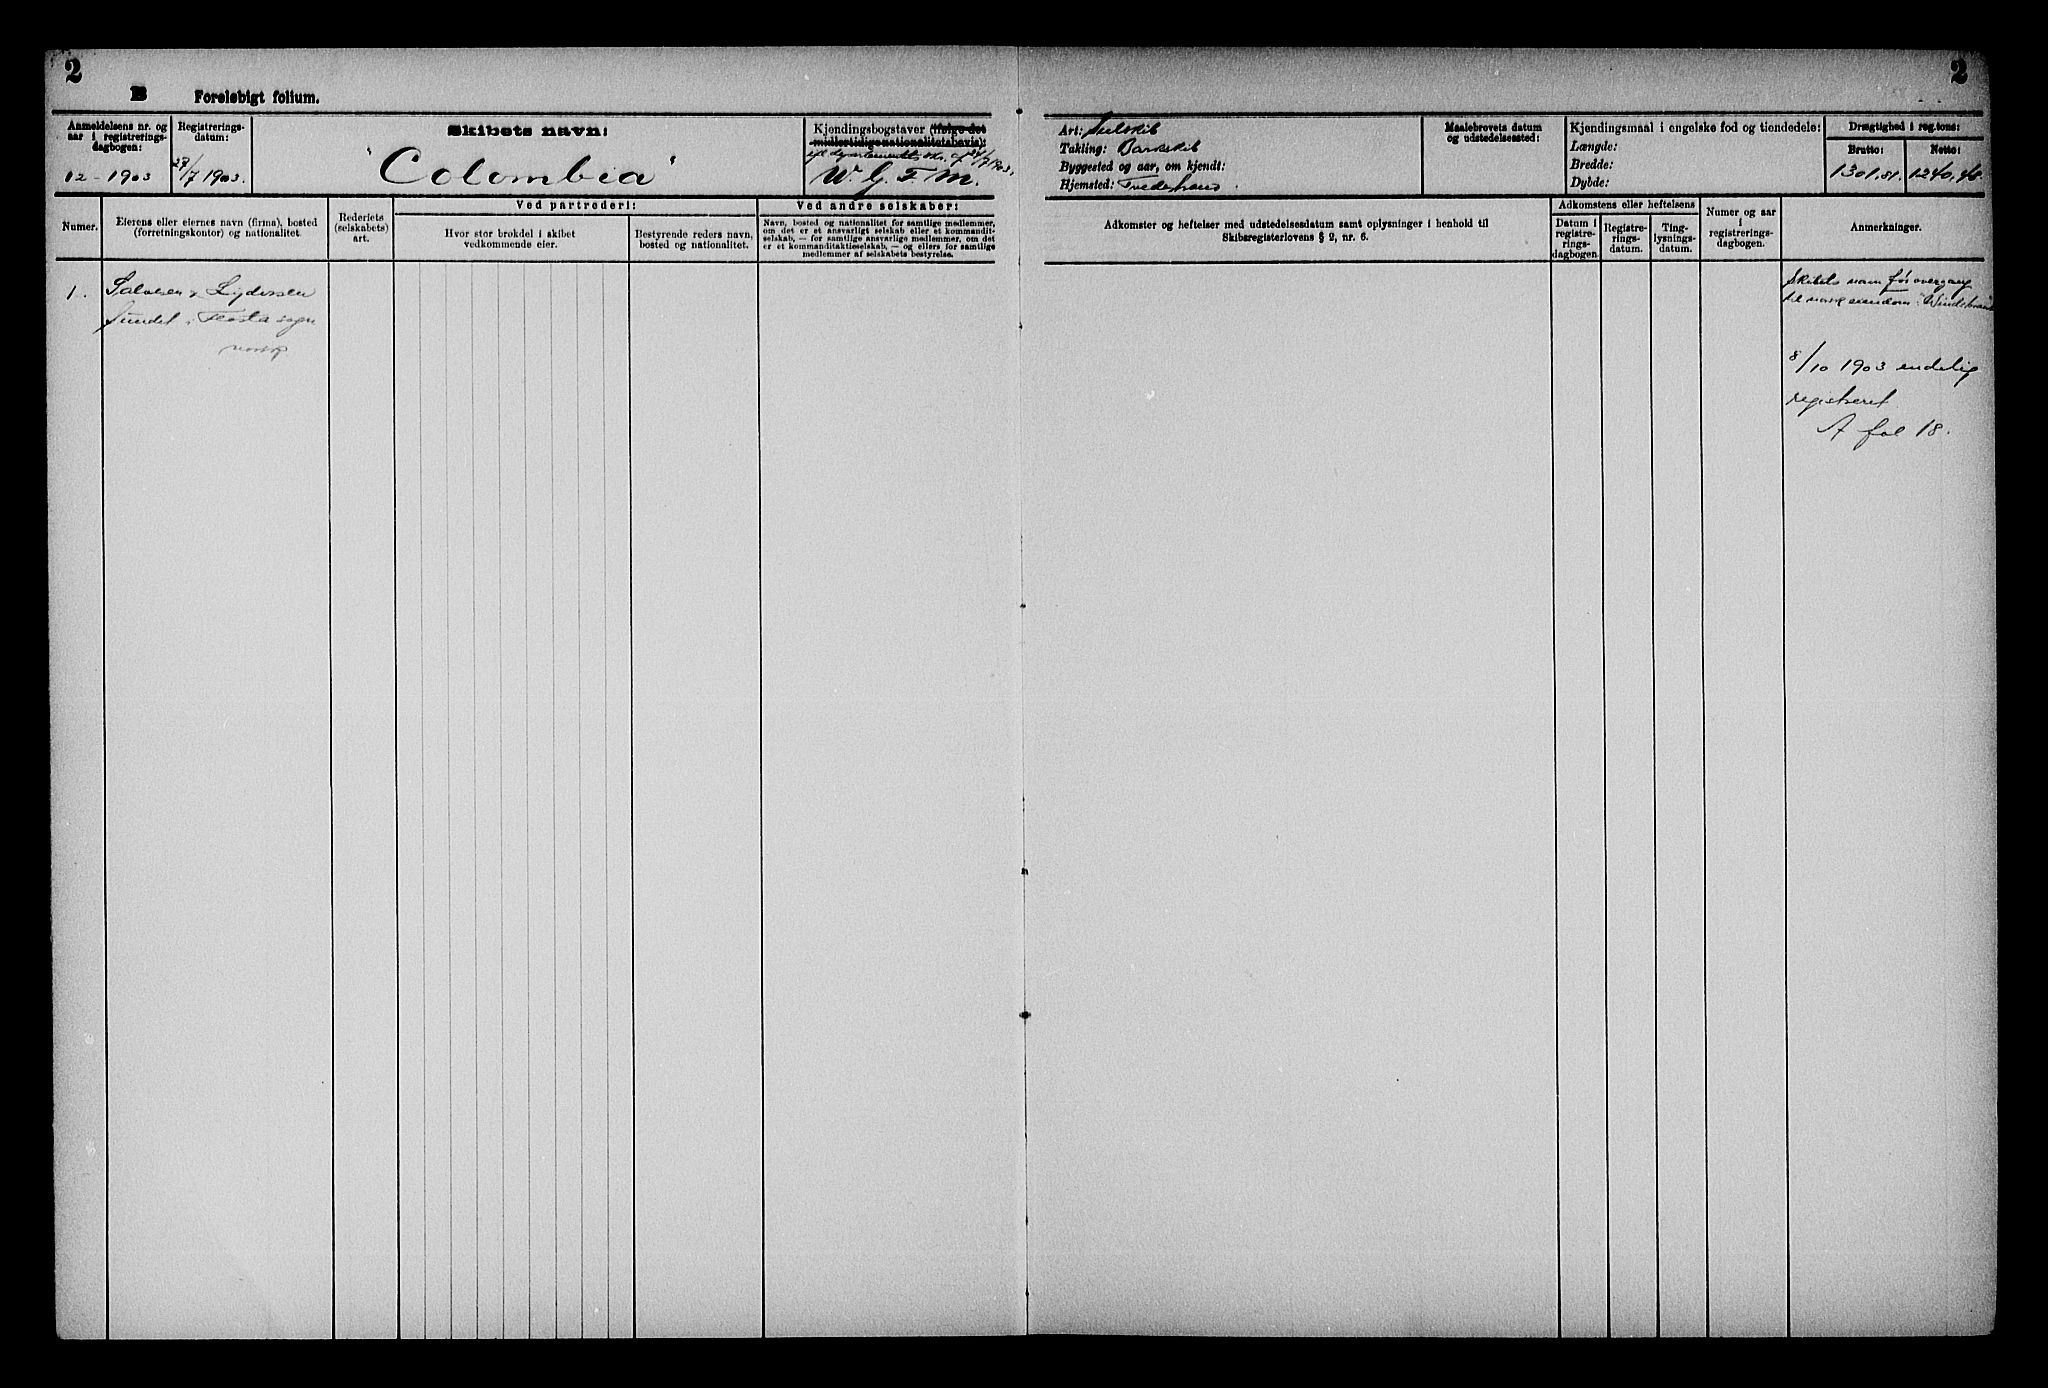 2
B Foreløbigt folium.
Anmeldelsens nr. og
aar i registrerings-
dagbogen:
12-1903
Registrerings-
datum:
28/7 1903.
Skibets navn:
"Colombia"
Kjendingsbogstaver (ifølge det
midlertidige nationalitetsbevis):
W. G. F. M.
Numer.
Eierens eller eiernes navn (firma), bosted
(forretningskontor) og nationalitet.
Rederiets
(selskabets)
art.
Ved partrederi:
Hvor stor brøkdel i skibet
vedkommende eier.
Bestyrende reders navn,
bosted og nationalitet.
Ved andre selskaber:
Navn, bosted og nationalitet for samtlige medlemmer,
om det er et ansvarligt selskab eller et kommandit-
selskab, — for samtlige ansvarlige medlemmer, om det
er et kommanditaktieselskab, — og ellers for samtlige
medlemmer af selskabets bestyrelse.
1.
Salvesen & Lydersen
Sundet i Flosta sogn
norsk
2
Art: Seilskib
Takling: Barkskib
Byggested og aar, om kjendt:
Hjemsted: Tvedestrand.
Maalebrevets datum
og udstedelsessted:
Kjendingsmaal i engelske fod og tiendedele:
Længde:
Bredde:
Dybde:
Drægtighed i reg.tons:
Brutto:
1301,81.
Netto:
1240,46.
Adkomster og heftelser med udstedelsesdatum samt oplysninger i henhold til
Skibsregisterlovens § 2, nr. 6.
Adkomstens eller heftelsens
Datum i
registre-
rings-
dagbogen.
Registre-
rings-
datum.
Ting-
lysnings-
datum.
Numer og aar
i
registrerings-
dagbogen.
Anmerkninger.
Skibets navn før overgang
til norsk eiendom:
8/10 1903 endelig
registreret
A fol 18.